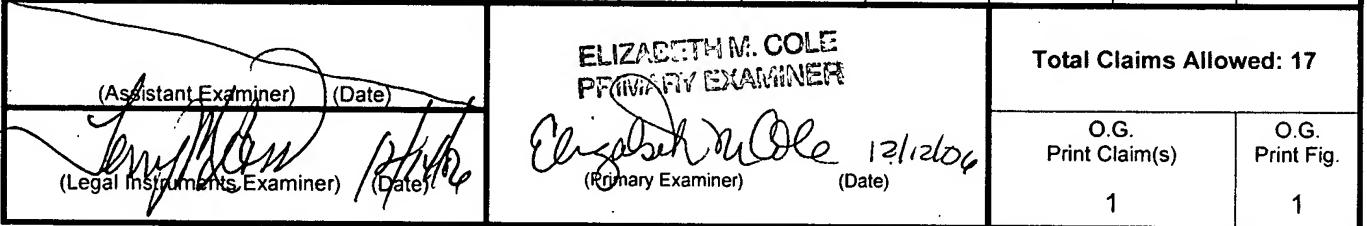 (Assistant Examiner) (Date)
(Legal Instruments Examiner) (Date)
ELIZABETH M. COLE
PRIMARY EXAMINER
Elizabeth M Cole 12/12/06
(Primary Examiner) (Date)
Total Claims Allowed: 17
O.G. Print Claim(s)
1
O.G. Print Fig.
1